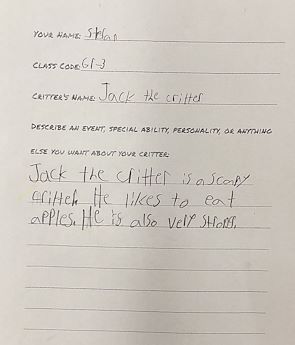 YOUR NAME: Stefan
CLASS CODE: G1-3
CRITTER'S NAME: Jack the critter
DESCRIBE AN EVENT, SPECIAL ABILITY, PERSONALITY, OR ANYTHING
ELSE YOU WANT ABOUT YOUR CRITTER:
Jack the critter is a scary
critter. He likes to eat
apples. He is also very strong.